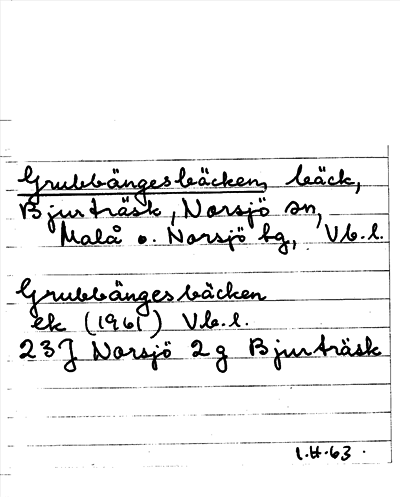 Grubbängesbäcken, bäck,
Bjurträsk, Norsjö sn,
Malå o. Norsjö tg, Vb.l.
Grubbängesbäcken
ek (1961) Vb.l.
23J Norsjö 2g Bjurträsk